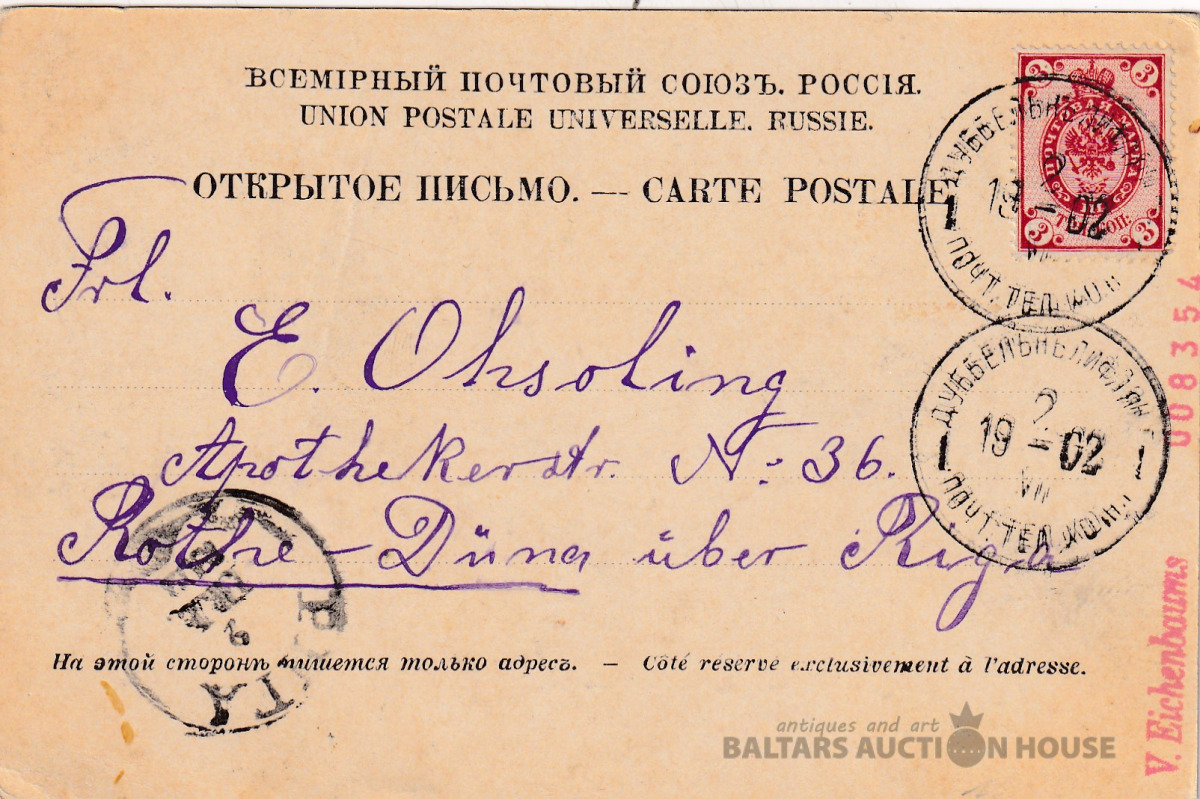 ВСЕМІРНЫЙ ПОЧТОВЫЙ СОЮЗЪ. РОССІЯ.
UNION POSTALE UNIVERSELLE. RUSSIE.
ОТКРЫТОЕ ПИСЬМО. — CARTE POSTALE
3 3
ПОЧТОВАЯ МАРКА
3 3
ДУББЕЛЬНЪ
2
19 - 02
VII
1
ПОЧТ. ТЕЛ. КОН.
Frl.
E. Ohsoling
Apothekerstr. No: 36.
Rothe-Düna über Riga
ДУББЕЛЬНЪ ЛИФЛЯН
2
19 - 02
VII
1 1
ПОЧТ. ТЕЛ. КОН.
На этой сторонѣ пишется только адресъ. — Côté réservé exclusivement à l'adresse.
008354
V. Eichenbaums
antiques and art
BALTARS AUCTION HOUSE